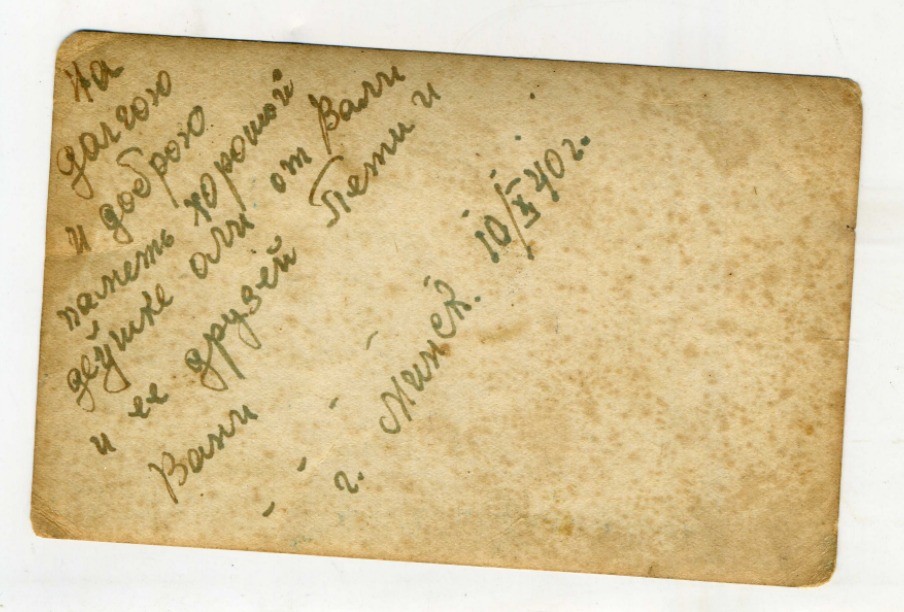 на
долгою
и доброю
паметь хорошой
деушке оли от Вали
и ее друзей Пети и
Вани
г. Минск. 10/XI 40 г.